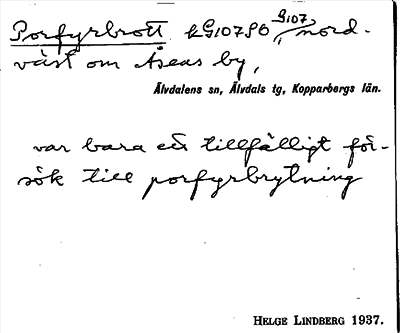 Porfyrbrott kG10780 G107, nord-
väst om Åsens by,
Älvdalens sn, Älvdals tg, Kopparbergs län.
var bara ett tillfälligt för-
sök till porfyrbrytning
HELGE LINDBERG 1937.